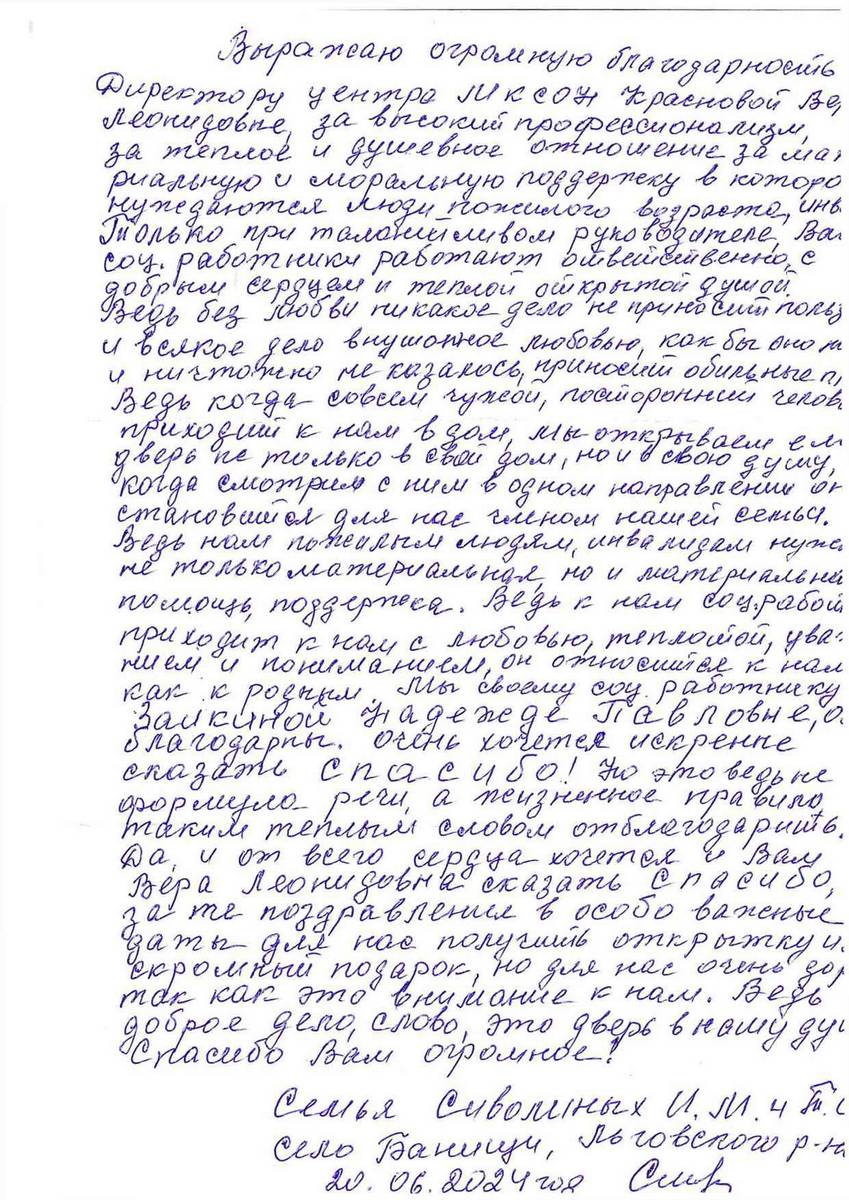 Выражаю огромную благодарность
Директору центра МКСОН Красновой Ве
Леонидовне, за высокий профессионализм,
за теплое и душевное отношение за мат
риальную и моральную поддержку в которо
нуждаются люди пожилого возраста, инв
Только при талантливом руководителе, Ва
соц. работники работают ответственно, с
добрым сердцем и теплой открытой душой.
Ведь без любви никакое дело не приносит польз
и всякое дело внушонное любовью, как бы оно
и ничтожно не казалось, приносит обильные п
Ведь когда совсем чужой, посторонний челов
приходит к нам в дом, мы открываем ем
дверь не только в свой дом, но и в свою душу,
когда смотрим с ним в одном направлении он
становится для нас членом нашей семьи.
Ведь нам пожилым людям, инвалидам нуж
не только материальная, но и материальна
помощь, поддержка. Ведь к нам соц. работ
приходит к нам с любовью, теплотой, ува
нием и пониманием, он относится к нам
как к родным. Мы своему соц. работнику
Заикиной Надежде Павловне, о
благодарны. Очень хочется искренне
сказать Спасибо! Но это ведь не
формула речи, а жизненное правило,
таким теплым словом отблагодарить.
Да, и от всего сердца хочется и Вам
Вера Леонидовна сказать Спасибо,
за те поздравления в особо важные
даты для нас получить открытку и
скромный подарок, но для нас очень дор
так как это внимание к нам. Ведь
доброе дело, слово, это дверь в нашу душ
Спасибо Вам огромное!
Семья Сиволиных И. М. и Т.
село Банищи, Льговского р-на
20. 06. 2024 год